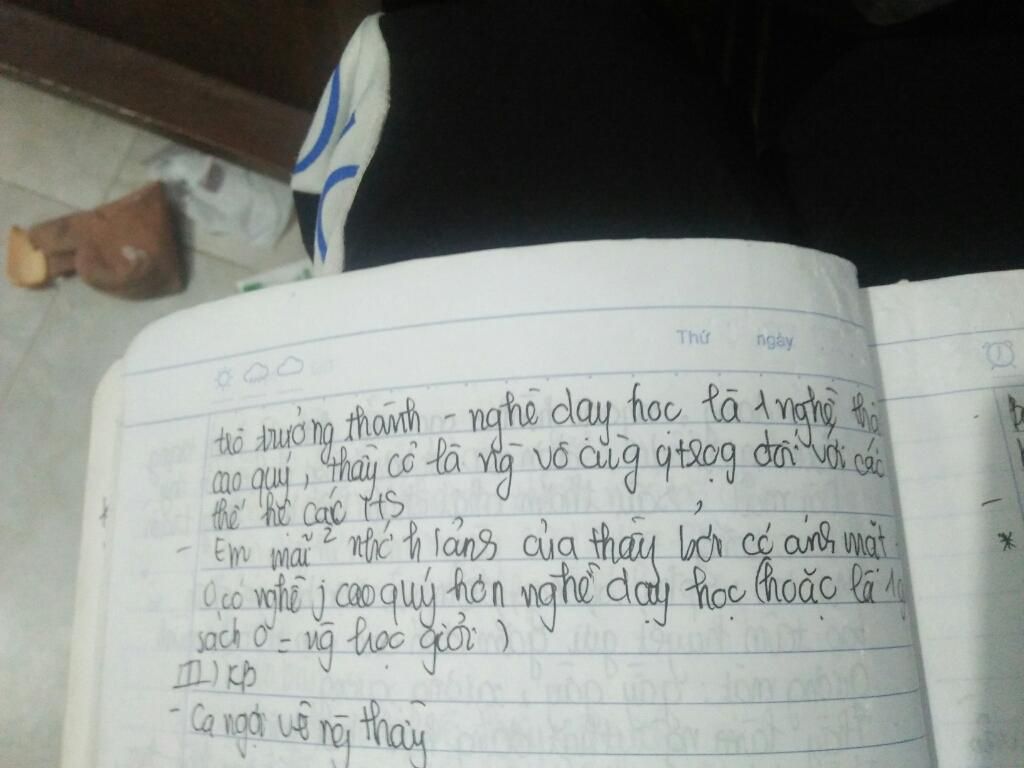 Thứ ngày
trò trưởng thành - nghề dạy học là 1 nghề
cao quý, thầy cô là ng vô cùg qtrọg đối với các
thế hệ các HS
- Em mãi² nhớ h ảnh của thầy bởi có ánh mắt.
0 có nghề j cao quý hơn nghề dạy học (hoặc là 1
sách 0 = ng học giỏi)
III) KB
- Ca ngợi về thầy
*
-
*